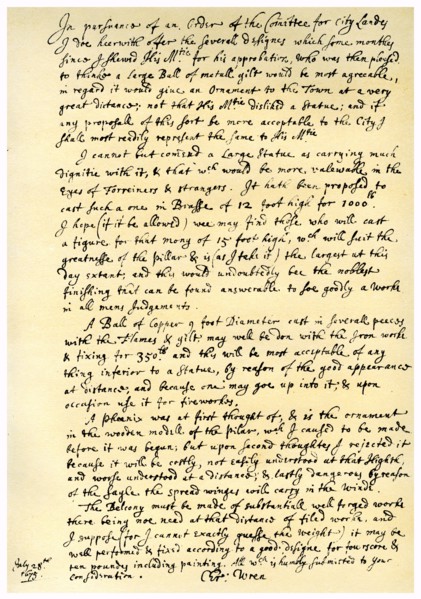 In pursuance of an Order of the Comittee for City Landes
I doe heerwith offer the severall designes which some monthes
since I shewed His M.tie for his approbation, who was then pleased
to thinke a large Ball of metall gilt would be most agreeable,
in regard it would give an Ornament to the Town at a very
great distance; not that His M.tie disliked a Statue; and if
any proposall of this sort be more acceptable to the City I
shall most readily represent the same to His M.tie
I cannot but comend a Large Statue as carrying much
dignitie with it, & that wch would be more valewable in the
Eyes of Forreiners & strangers. It hath been proposed to
cast such a one in Brasse of 12 foot high for 1000lb
I hope (if it be allowed) wee may find those who will cast
a figure for that mony of 15 foot high, wch will suit the
greatnesse of the pillar & is (as I take it) the largest at this
day extant; and this would undoubtedly bee the noblest
finishing that can be found answerable to soe goodly a worke
in all mens Judgements.
A Ball of Copper 9 foot Diameter cast in severall peeces
with the Flames & gilt, may well be don with the Iron worke
& fixing for 350lb and this will be most acceptable of any
thing inferior to a Statue, by reason of the good appearance
at distance, and because one may goe up into it; & upon
occasion use it for fireworkes.
A phœnix was at first thought of, & is the ornament
in the wooden modell of the pilar, wch I caused to be made
before it was begun; but upon second thoughtes I rejected it
because it will be costly, not easily understood at that Highth,
and worse understood at a distance; & lastly dangerous by reason
of the Sayle the spread winges will carry in the winde.
The Balcony must be made of substantiall well forged worke
there being noe need at that distance of filed worke, and
I suppose (for I cannot exactly guesse the weight) it may be
well performed & fixed according to a good designe for fourscore &
ten poundes including painting. All wch is humbly submitted to your
consideration.
July 28th
1675.
Chr: Wren